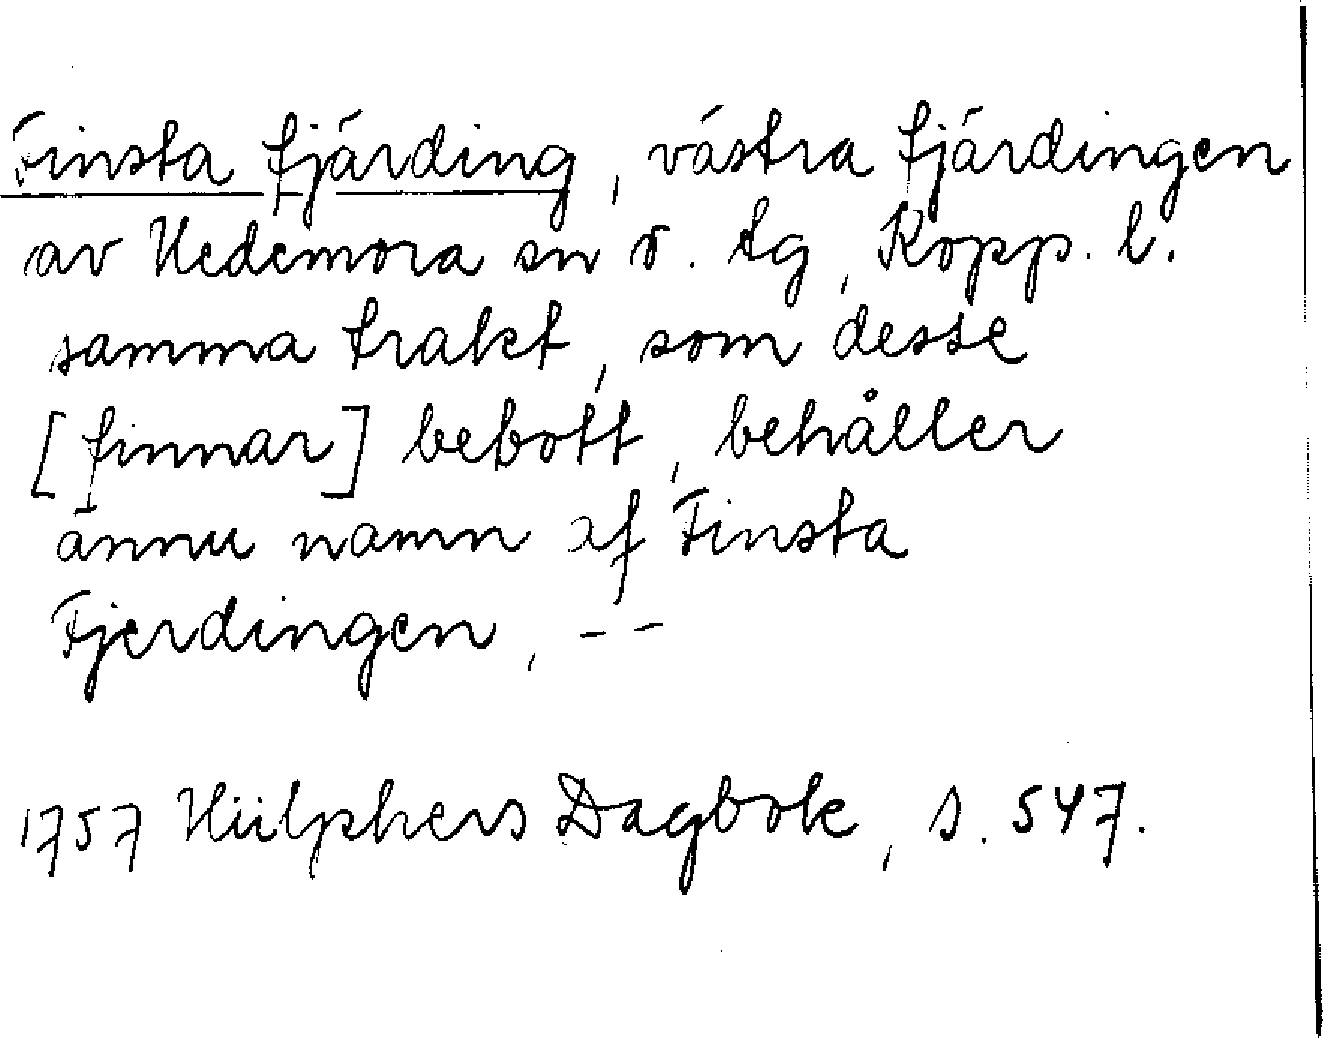 Finsta fjärding, västra fjärdingen
av Hedemora sn o. tg, Kopp. l.
samma trakt, som desse
[finnar] bebott, behåller
ännu namn af Finsta
Fjerdingen, --
1757 Hülphers Dagbok, s. 547.